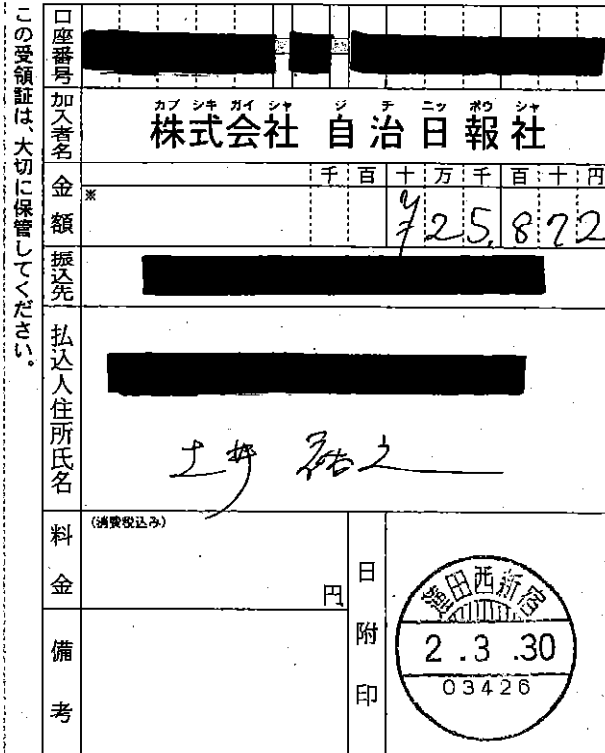 この受領証は、大切に保管してください。
口座番号
加入者名
カブ シキ ガイ シャ ジ チ ニッ ポウ シャ
株式会社 自治日報社
金額
千百十万千百十円
※
¥25,872
振込先
払込人住所氏名
土井 祐之
料金
(消費税込み)
円
備考
日附印
蓮田西新宿
2.3.30
03426